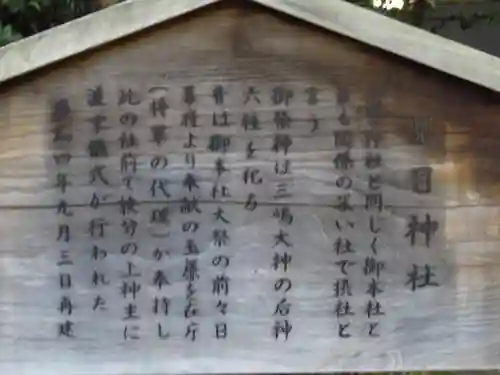 日神社
神社と同しく御本社と
も関係の深い社で摂社と
言う
御祭神は三嶋大神の后神
六柱を祀る
昔は御本社大祭の前々日
幕府より奉献の玉簾を在庁
(将軍の代理)が奉持し
此の社前で検分の上神主に
渡す儀式が行われた
四年九月三日再建